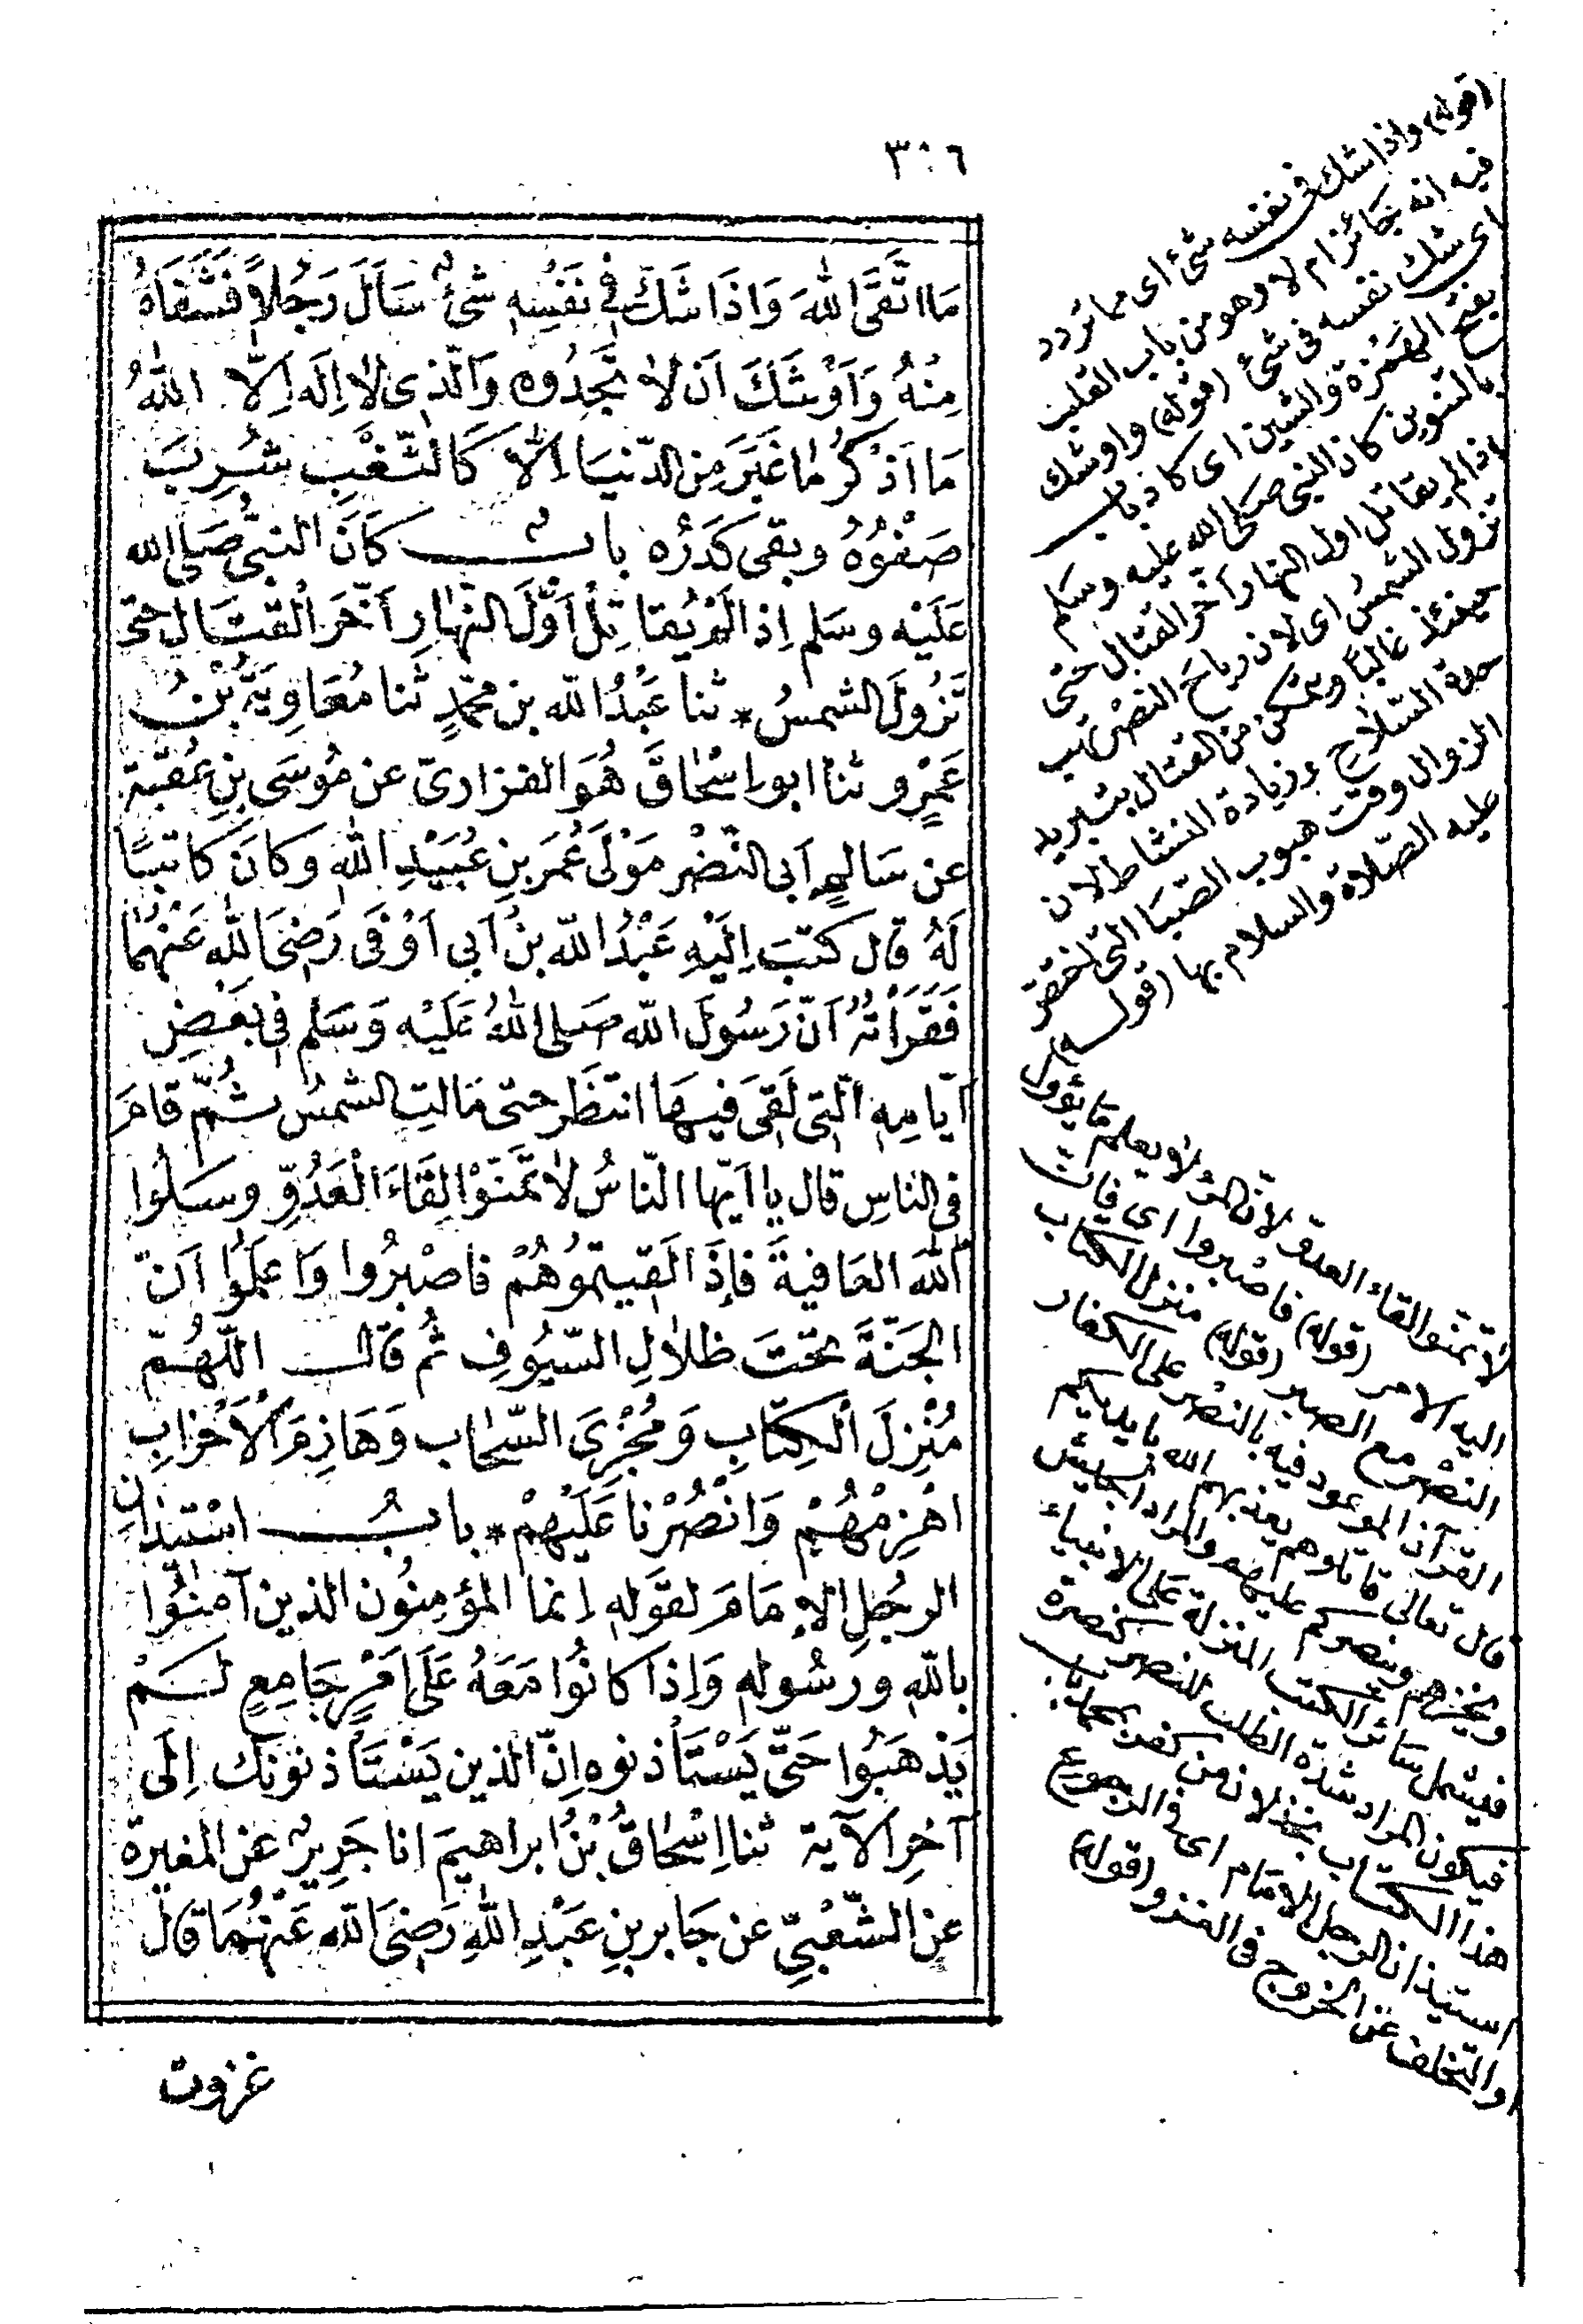 ٣٠٦
مَا اتَّقَى اللهَ وَاِذَا شَكَّ فِي نَفْسِهِ شَئٌ سَاَلَ رَجُلاً فَشَفَاهُ
مِنْهُ وَاَوْشَكَ اَنْ لاٰ تَجِدُوهُ وَالَّذِى لاٰ اِلٰهَ اِلَّا اللهُ
مَا اَذْكُرُ مٰا غَبَرَ مِنَ الدّنيَا اِلَّا كَالثَّغْبِ شُرِبَ
صَفْوُهُ وبقى كَدَرُه بابٌ كَانَ النبىُّ صَلى الله
عَلَيْه وسَلم اِذا لَمْ يُقاتِلْ اَوَّلَ النَّهٰارِ اَخَّرَ الْقتَال حتى
تَزُولَ الشمسُ * ثنا عَبْدُ الله بن محمَّدٍ ثنا مُعَاوِيَةُ بْنُ
عَمْرٍو ثنا ابو اسْحٰاقَ هُوَ الفزارىّ عن مُوسَى بنِ عُقْبَة
عن سَالِمٍ اَبى النَّضْرِ مَوْلَى عُمَرَ بنِ عُبَيْدِ اللهِ وكانَ كاتبًا
لَهُ قال كتَبَ اِلَيْهِ عَبْدُ الله بنُ اَبى اَوْفَى رَضِىَ اللهُ عَنْهُمَا
فَقَرَأْتُهُ اَنّ رَسُولَ الله صَلى اللهُ عَلَيْه وَسَلم فى بَعْضِ
اَيامِهِ الّتى لَقِىَ فيهَا انتَظَر حتى مَالتِ الشمسُ ثُمَّ قامَ
فى الناسِ قال يا اَيّها النّاسُ لاٰ تَمَنَّوْا لِقَاءَ الْعَدُوِّ وسَلُوا
اللهَ العَافيةَ فاِذَا لَقيتمُوهُمْ فاصْبِرُوا وَاعلَمُوا اَنّ
الجَنّةَ تحْتَ ظلاٰلِ السّيُوفِ ثُم قال اللّهُمّ
مُنْزِلَ الْكِتَابِ وَمُجْرِىَ السّحَاب وَهَازِمَ الْاَحْزابِ
اهْزِمْهُمْ وَانْصُرْنا عَلَيْهِمْ * بابُ استيذانِ
الرجُلِ الاِمَامَ لقوْلهِ اِنما المؤمِنُون الذين آمنُوا
باللهِ ورسُولهِ وَاِذا كانُوا مَعَهُ عَلَى اَمْرٍ جَامِعٍ لَمْ
يَذْهَبُوا حَتَّى يَسْتَأْذنوه اِنّ الذين يَسْتَأْذنونَك اِلَى
آخرِ الآية ثنا اِسْحَاقُ بْنُ ابراهيمَ انا جَرِيرٌ عن المغيرة
عن الشّعْبىِّ عن جَابربنِ عَبْدِ اللهِ رَضىَ الله عَنْهُمَا قال
غزوت
(قوله) واذا شك فى نفسه شئ اى مما تردد
فيه انه جائز ام لا وهو من باب القلب
اى شك نفسه فى شئ (قوله) واوشك
بفتح الهمزة والشين اى كاد باب
بالتنوين كان النبى صلى الله عليه وسلم
اذا لم يقاتل اول النهار اخر القتال حتى
تزول الشمس اى لان رياح النصر تهب
حينئذ غالبًا ويتمكن من القتال بتبريد
حدة السّلاح وزيادة النشاط لان
الزوال وقت هبوب الصّبَا التى اختصّ
عليه الصّلاة والسلام بها (قوله)
لا تمنوا لقاء العدو لانّ المرء لا يعلم ما يؤول
اليه الامر (قوله) فاصبروا اى فان
النصر مع الصبر (قوله) منزل الكتاب
القرآن الموعود فيه بالنصر على الكفار
قال تعالى قاتلوهم يعذبهم الله بايديكم
ويخزهم وينصركم عليهم والمراد الجنس
فيشمل سائر الكتب المنزلة على الانبياء
فيكون المراد شدّة الطلب للنصر كنصرة
هذا الكتاب بخذلان من كفر باب
استيذان الرجل الامام اى فى الرجوع
او التخلف عن الخروج فى الغزو (قوله)